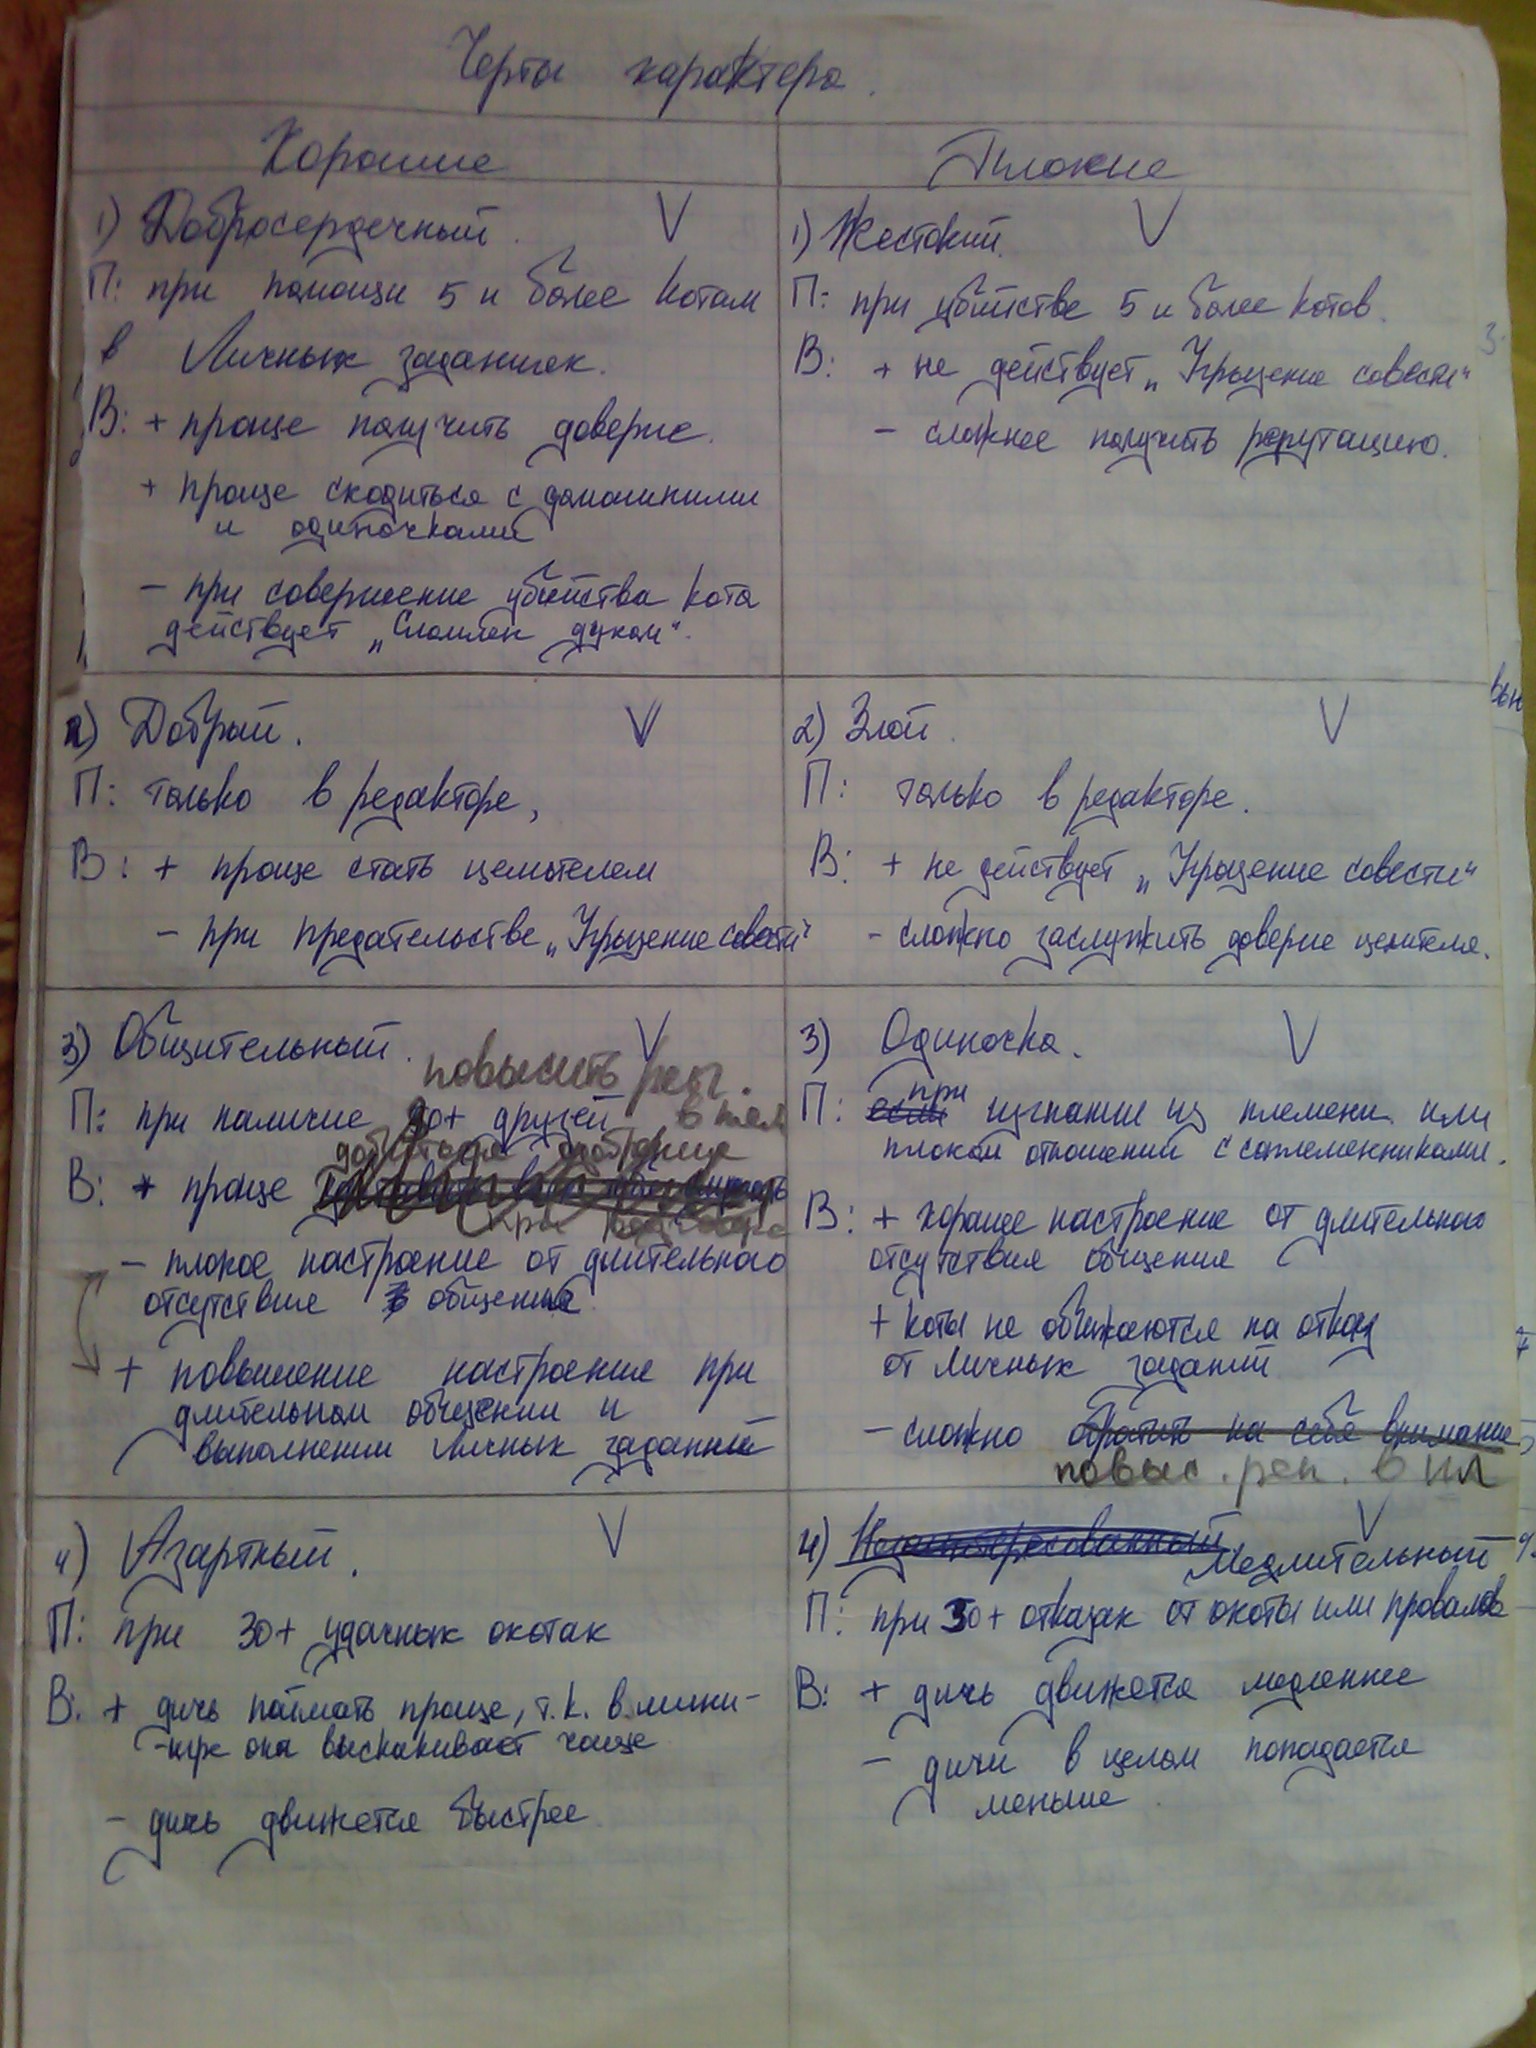 Черты характера.
Хорошие
Плохие
1) Добросердечный. V
П: при помощи 5 и более котам
в Личных заданиях.
В: + проще получить доверие.
+ проще сходиться с домашними
и одиночками
- при совершение убийства кота
действует „Сломлен духом".
1) Жестокий. V
П: при убийстве 5 и более котов.
В: + не действует „Укрыцение совести"
- сложнее получить репутацию.
2) Добрый. V
П: только в редакторе,
В: + проще стать целителем
- при предательстве „Укрыцение совести"
2) Злой. V
П: только в редакторе.
В: + не действует „Укрыцение совести"
- сложно заслужить доверие целителя.
3) Общительный. V
повысить реп.
П: при наличие 20+ друзей в плем
добиться одобрения
В: + проще
- плохое настроение от длительного
отсутствие общения
+ повышение настроения при
длительном общении и
выполнении Личных заданий
3) Одиночка. V
при
П: если изгнание из племени или
плохом отношений с соплеменниками.
В: + хорошее настроение от длительного
отсутствия общения
+ коты не обижаются на отказ
от Личных заданий
- сложно обратить на себя внимание
повыс. реп. в пл
4) Азартный. V
П: при 30+ удачных охотах
В: + дичь поймать проще, т.к. в мини-
-игре она выскакивает чаще
- дичь движется быстрее
4) V
Медлительный
П: при 30+ отказах от охоты или провалов
В: + дичь движется медленнее
- дичи в целом попадается
меньше.